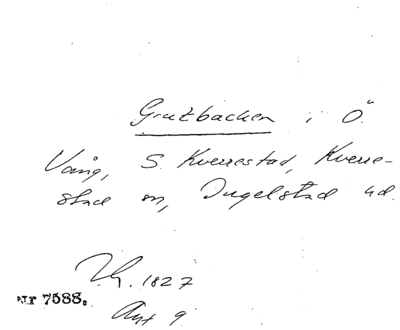 Grutbacken i Ö.
Vång, S. Kverrestad, Kverre-
stad sn, Ingelstad hd.
1827
Nr 7588.
Akt 9